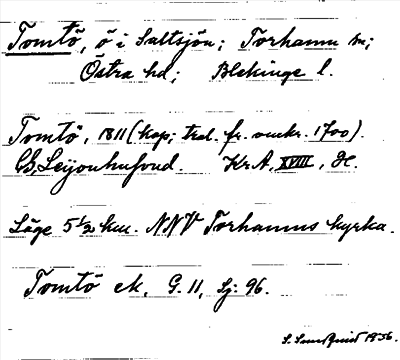 Tomtö, ö i Saltsjön; Torhamn sn;
Östra hd; Blekinge l.
Tomtö, 1811 (kop; trol. fr. omkr. 1700).
CG, Leijonhufvud. KrA, XVIII, H.
Läge 5 1/2 km. NNV Torhamns kyrka.
Tomtö ek. G. 11, Sj: 96.
S. Sundquist 1936.